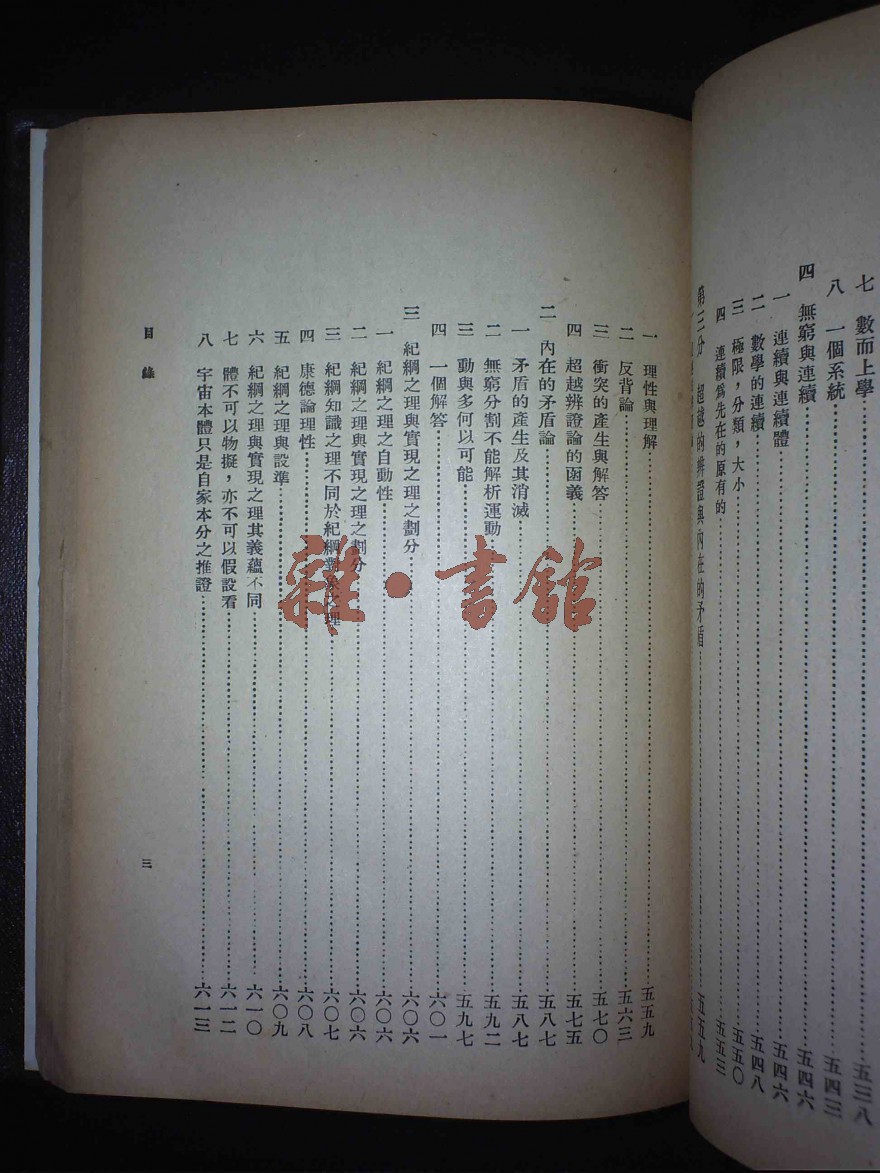 七 數而上學 五三八
八 一個系統 五四三
四 無窮與連續 五四六
一 連續與連續體 五四六
二 數學的連續 五四八
三 極限，分類，大小 五五〇
四 連續爲先在的原有的 五五三
第三分 超越的辨證與內在的矛盾 五五九
一 理性與理解 五五九
二 反背論 五六三
三 衝突的產生與解答 五七〇
四 超越辨證論的函義 五七五
二 內在的矛盾論 五八七
一 矛盾的產生及其消滅 五八七
二 無窮分割不能解析運動 五九二
三 動與多何以可能 五九七
四 一個解答 六〇一
三 紀綱之理與實現之理之劃分 六〇六
一 紀綱之理之自動性 六〇六
二 紀綱之理與實現之理之劃分 六〇六
三 紀綱知識之理不同於紀綱對象之理 六〇七
四 康德論理性 六〇八
五 紀綱之理與設準 六〇九
六 紀綱之理與實現之理其義蘊不同 六一〇
七 體不可以物擬，亦不可以假設看 六一二
八 宇宙本體只是自家本分之推證 六一三
目錄
三
雜·書館